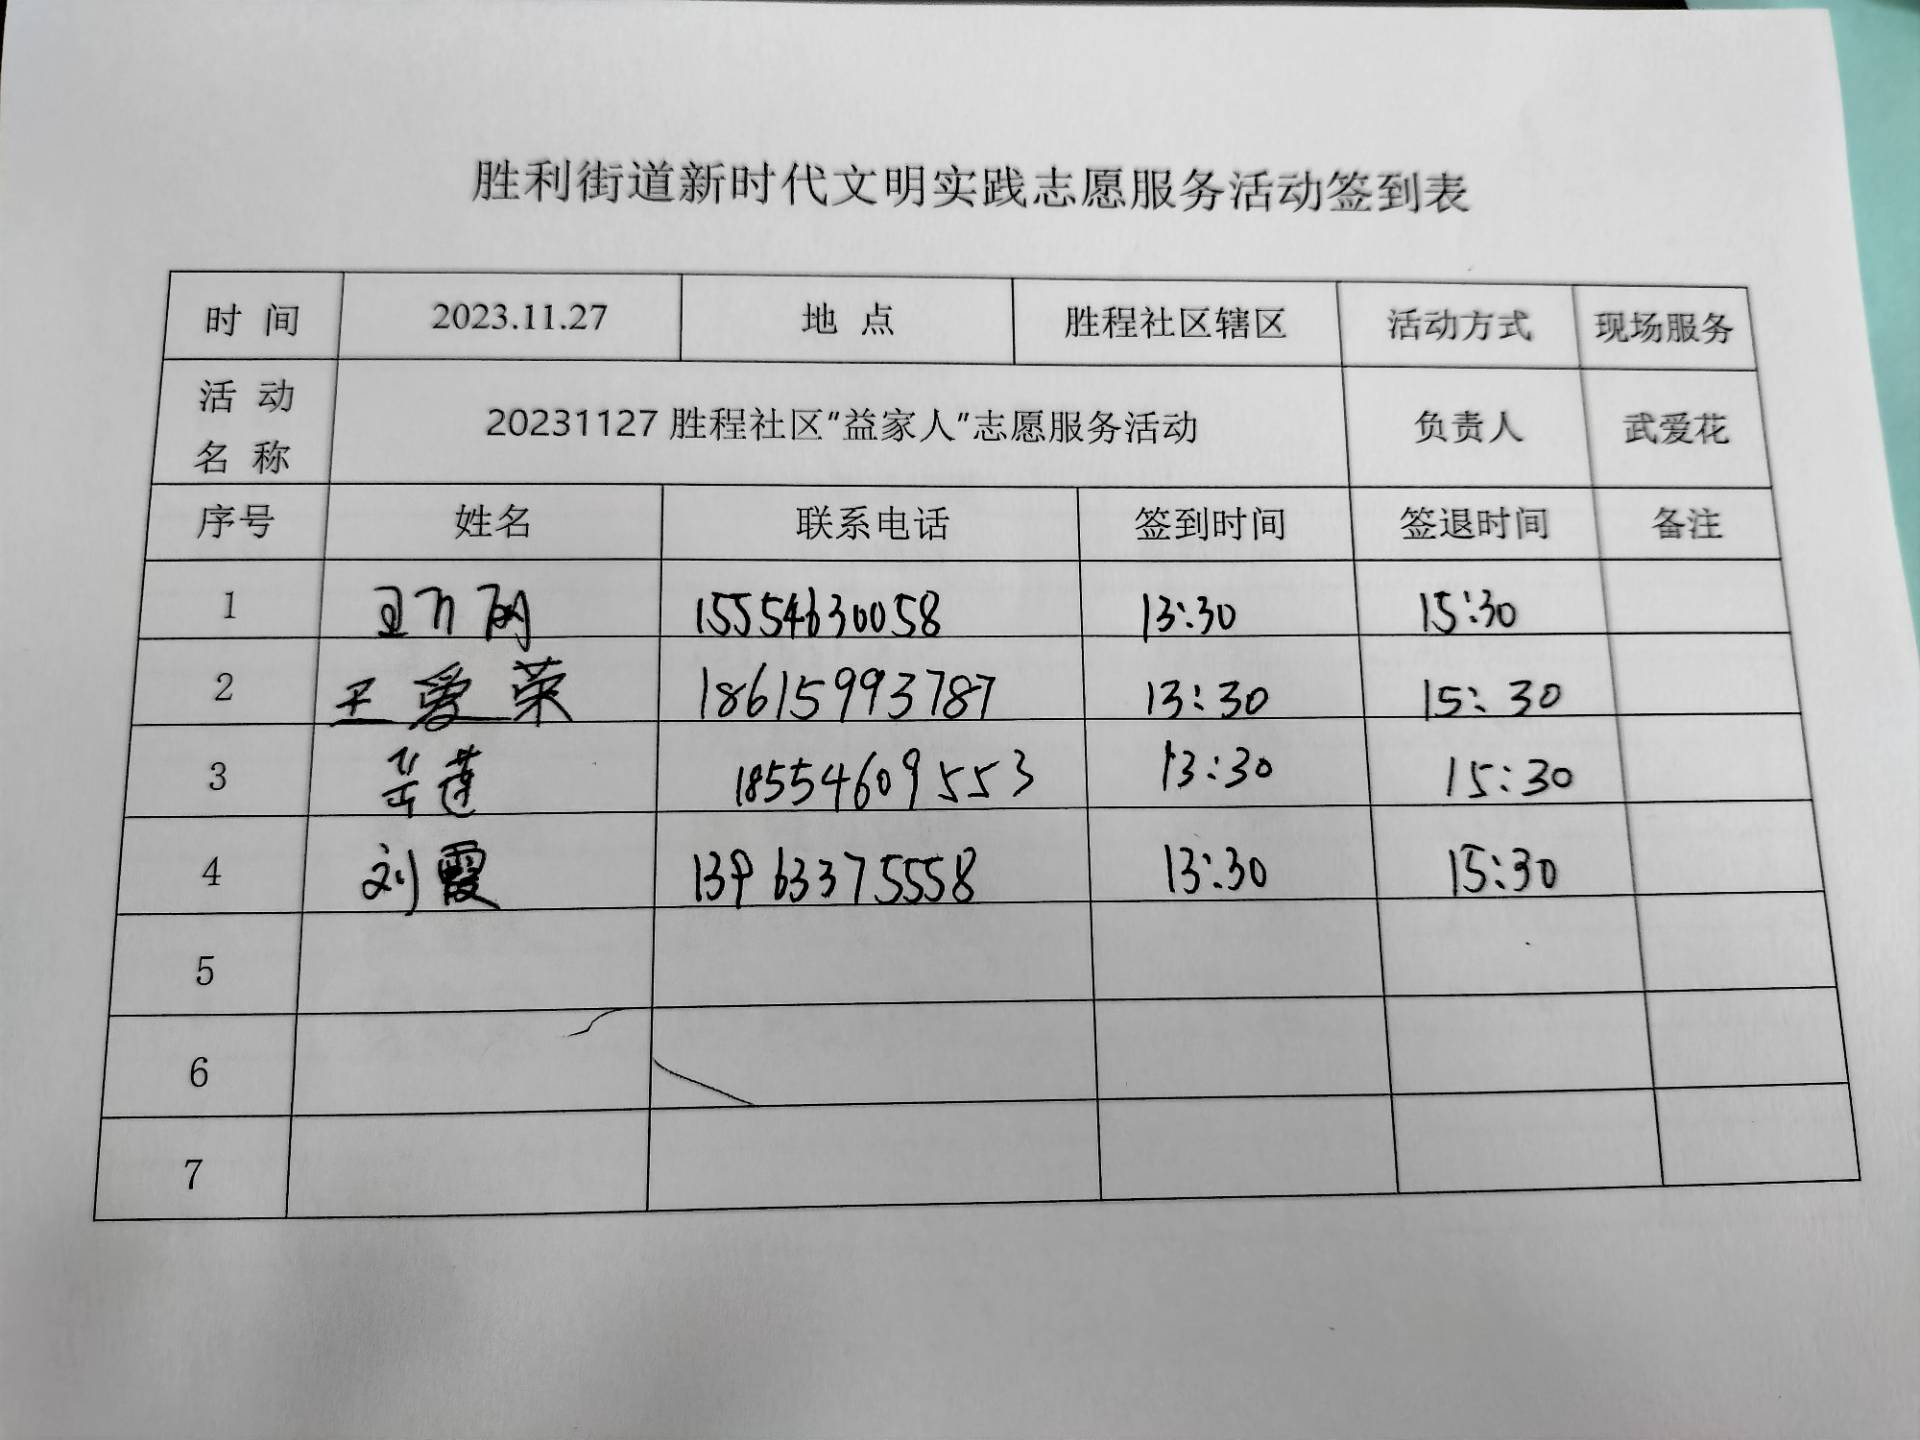 胜利街道新时代文明实践志愿服务活动签到表
时 间 2023.11.27 地 点 胜程社区辖区 活动方式 现场服务
活 动 名 称 20231127 胜程社区“益家人”志愿服务活动 负责人 武爱花
序号 姓名 联系电话 签到时间 签退时间 备注
1 15554630058 13:30 15:30
2 王爱荣 18615993787 13:30 15:30
3 18554609553 13:30 15:30
4 刘霞 13963375558 13:30 15:30
5
6
7